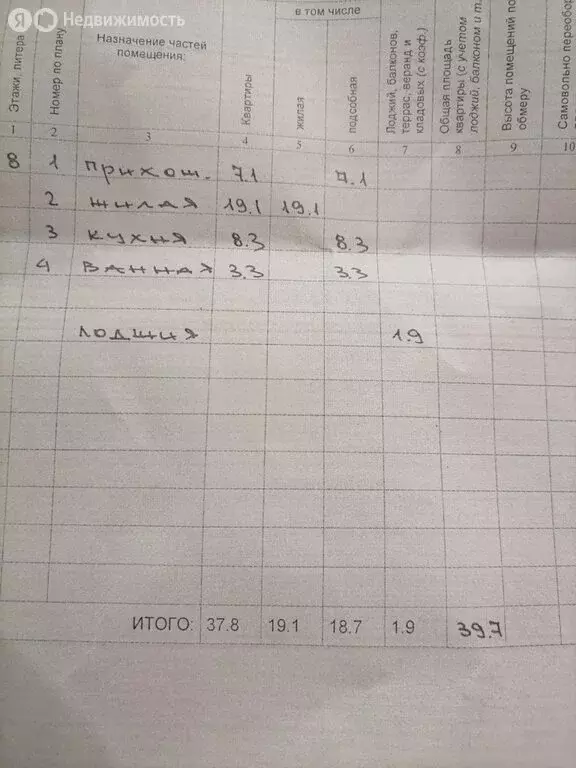 Я Недвижимость
Этажи, литера
Номер по плану
Назначение частей
помещения:
Квартиры
в том числе
жилая
подсобная
Лоджий, балконов,
террас, веранд и
кладовых (с коэф.)
Общая площадь
квартиры (с учетом
лоджий, балконом и т.
Высота помещений по
обмеру
Самовольно переобор
1 2 3 4 5 6 7 8 9 10
8 1 прихош. 7.1 7.1
2 жилая 19.1 19.1
3 кухня 8.3 8.3
4 ванная 3.3 3.3
лоджия 1.9
ИТОГО: 37.8 19.1 18.7 1.9 39.7